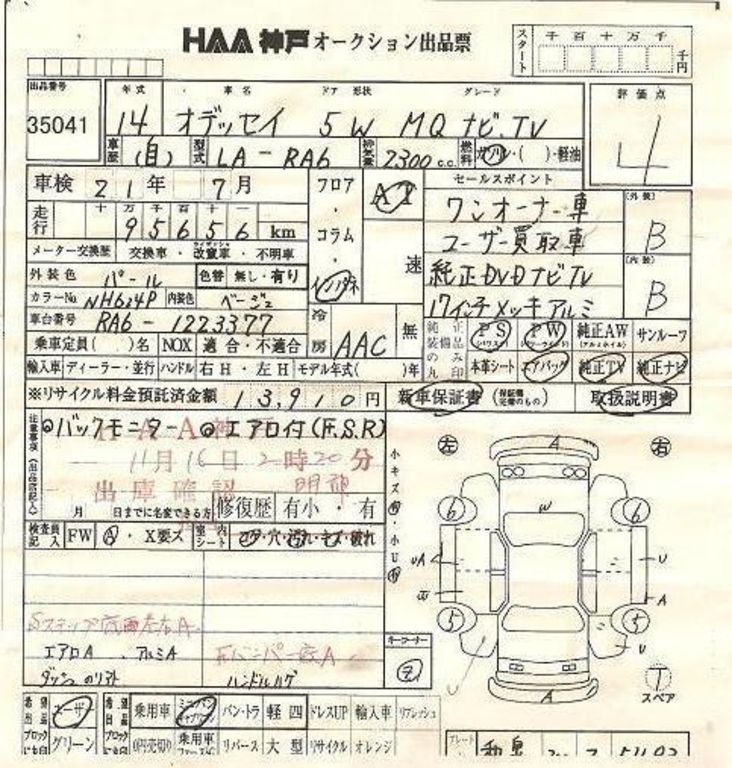 HAA 神戸 オークション出品票
スタート 千 百 十 万 千 千円
出品番号 年式 車名 ドア 形状 グレード 評価点
35041 14 オデッセイ 5 W MQ ナビ.TV 4
車歴 (自) 型式 LA-RA6 排気量 2300 c.c. 燃料 ガソリン・( )・軽油
車検 21年 7月 フロア・コラム・インパネ AT 速 セールスポイント
走行 十 万 千 百 十 一
95656 km
ワンオーナー車 (外装) B
ユーザー買取車
純正DVDナビTV (内装) B
17インチメッキアルミ
メーター交換歴 交換車・改竄車・不明車
外装色 パール 色替 無し・有り
カラーNo NH624P 内装色 ベージュ
車台番号 RA6-1223377 冷房 AAC 無
純正品装備品のみ丸印 PS (パワステ) PW (パワーウインド) 純正AW (アルミホイル) サンルーフ
乗車定員( )名 NOX 適合・不適合
本車シート エアバッグ 純正TV 純正ナビ
輸入車 ディーラー・並行 ハンドル 右H・左H モデル年式( )年
※リサイクル料金預託済金額 13,910円 新車保証書 (保証継続に完備のもの) 取扱説明書
注意事項(出品店記入)
◎バックモニター ◎エアロ付(F.S.R)
HAA神
11月16日2時20分
出庫確認 明神
月 日までに名変できる方 修復歴 有小・有
小キズ
小U
検査員記入 FW A・X要ス 室内シート コゲ・穴・汚れ・キズ・破れ
Sステップ底面左右A
エアロA . アルミA Fバンパー底A
ダッシュのリアト ハンドルハゲ
左 右
A
W
6 6
UA U
A
5 5
U U
A
キーコーナー
T スペア
希望出品ブロックに○印 ユーザー グリーン
乗用車 ミニバン バン・トラ 軽四 ドレスUP 輸入車 リフレッシュ
0円売切り 乗用車 リバース 大型 リサイクル オレンジ
プレート 和泉